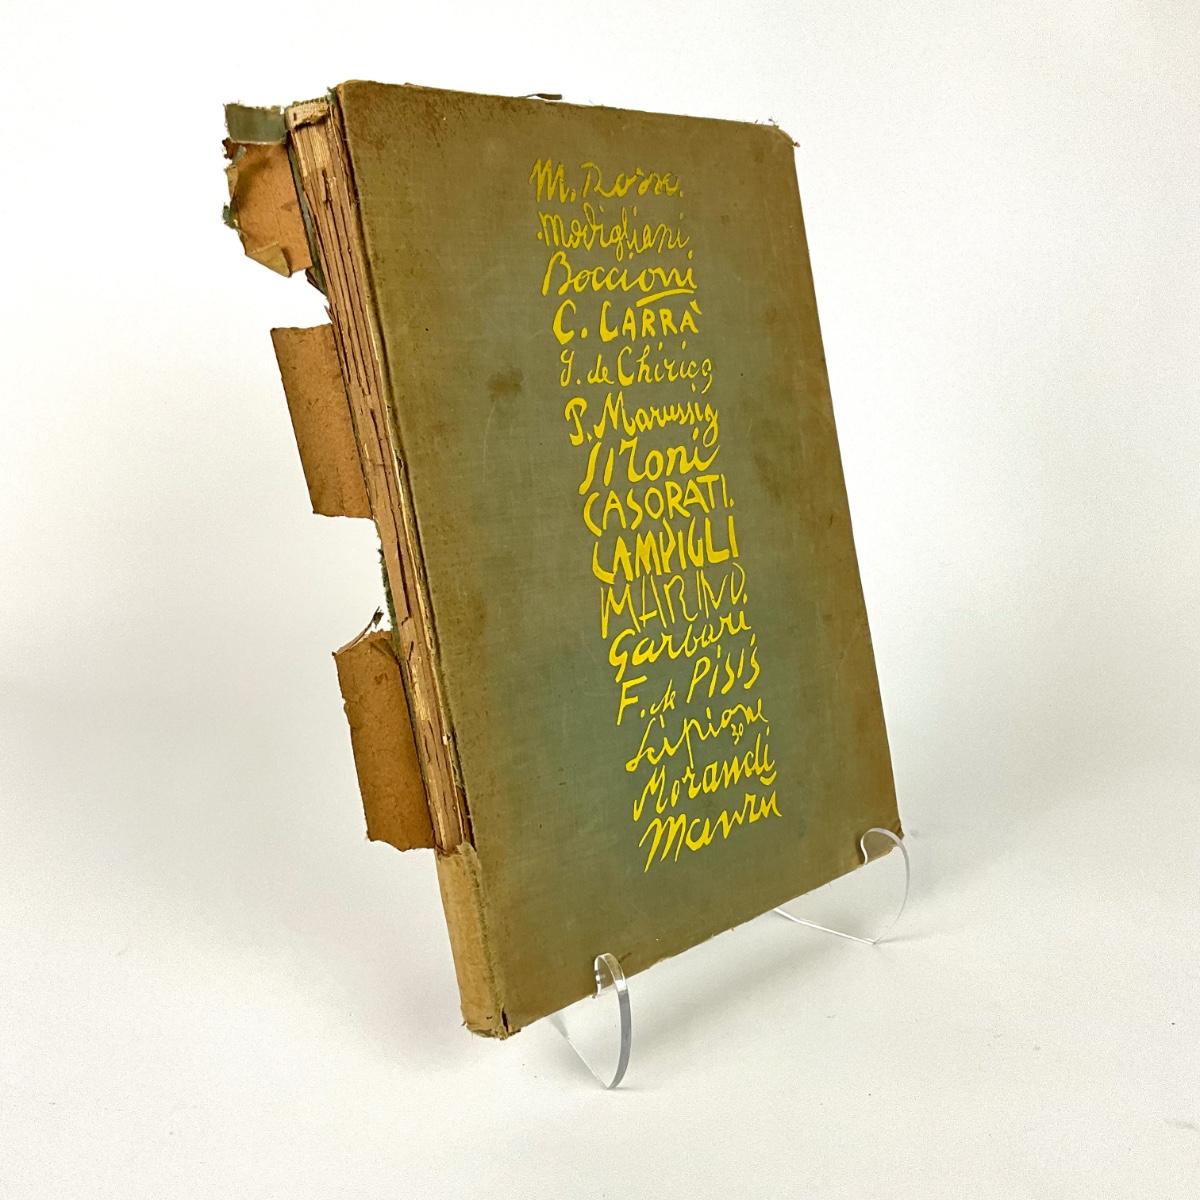 M. Rosso.
Modigliani
Boccioni
C. CARRÀ
G. de Chirico
P. Marussig
Sironi
CASORATI.
CAMPIGLI
MARINO.
Garbari
F. de Pisis
Scipione
30
Morandi
Manzù